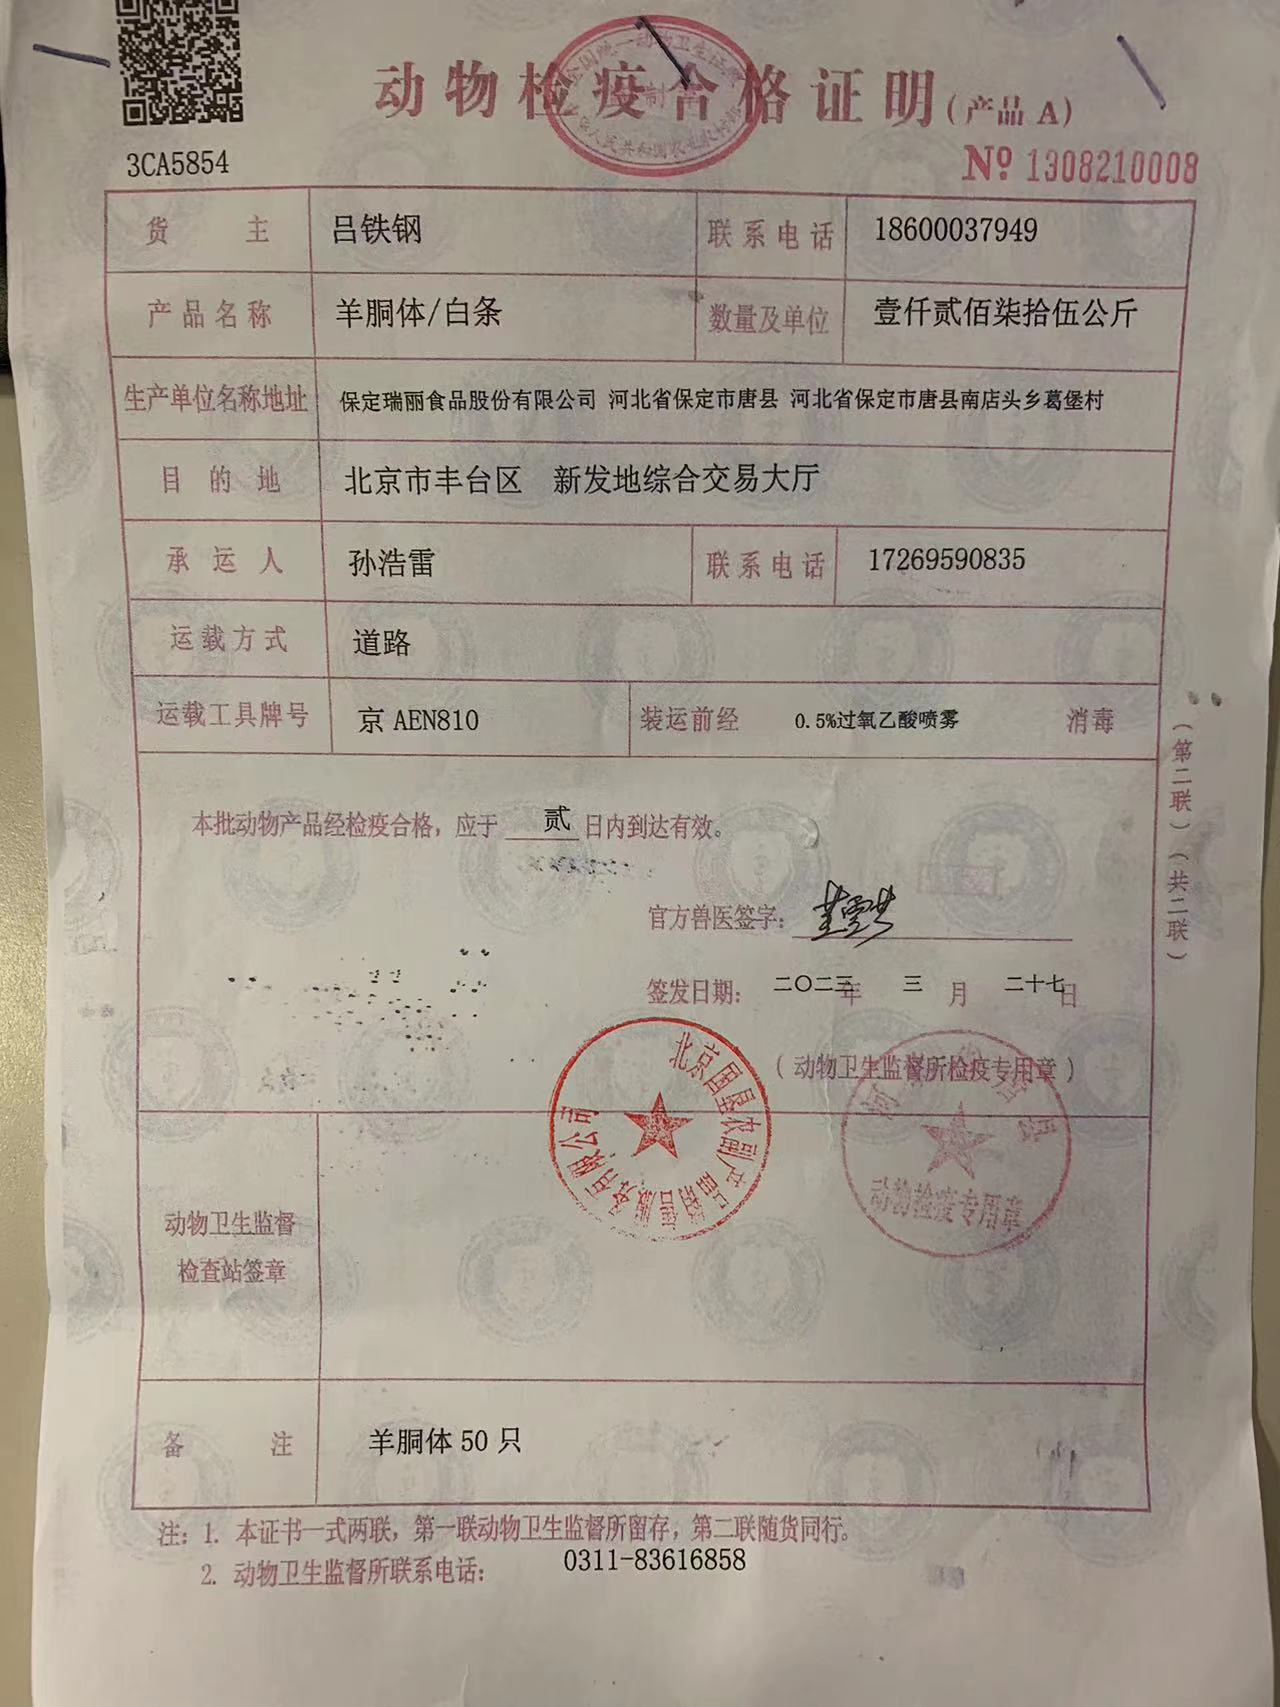 动物检疫合格证明(产品 A)
3CA5854
№ 1308210008
货主 吕铁钢 联系电话 18600037949
产品名称 羊胴体/白条 数量及单位 壹仟贰佰柒拾伍公斤
生产单位名称地址 保定瑞丽食品股份有限公司 河北省保定市唐县 河北省保定市唐县南店头乡葛堡村
目的地 北京市丰台区 新发地综合交易大厅
承运人 孙浩雷 联系电话 17269590835
运载方式 道路
运载工具牌号 京 AEN810 装运前经 0.5%过氧乙酸喷雾 消毒
本批动物产品经检疫合格，应于 贰 日内到达有效。
官方兽医签字：
签发日期： 二〇二三年 三 月 二十七日
(动物卫生监督所检疫专用章)
动物检疫专用章
动物卫生监督
检查站签章
备注 羊胴体 50 只
(第二联)(共二联)
注：1. 本证书一式两联，第一联动物卫生监督所留存，第二联随货同行。
2. 动物卫生监督所联系电话： 0311-83616858